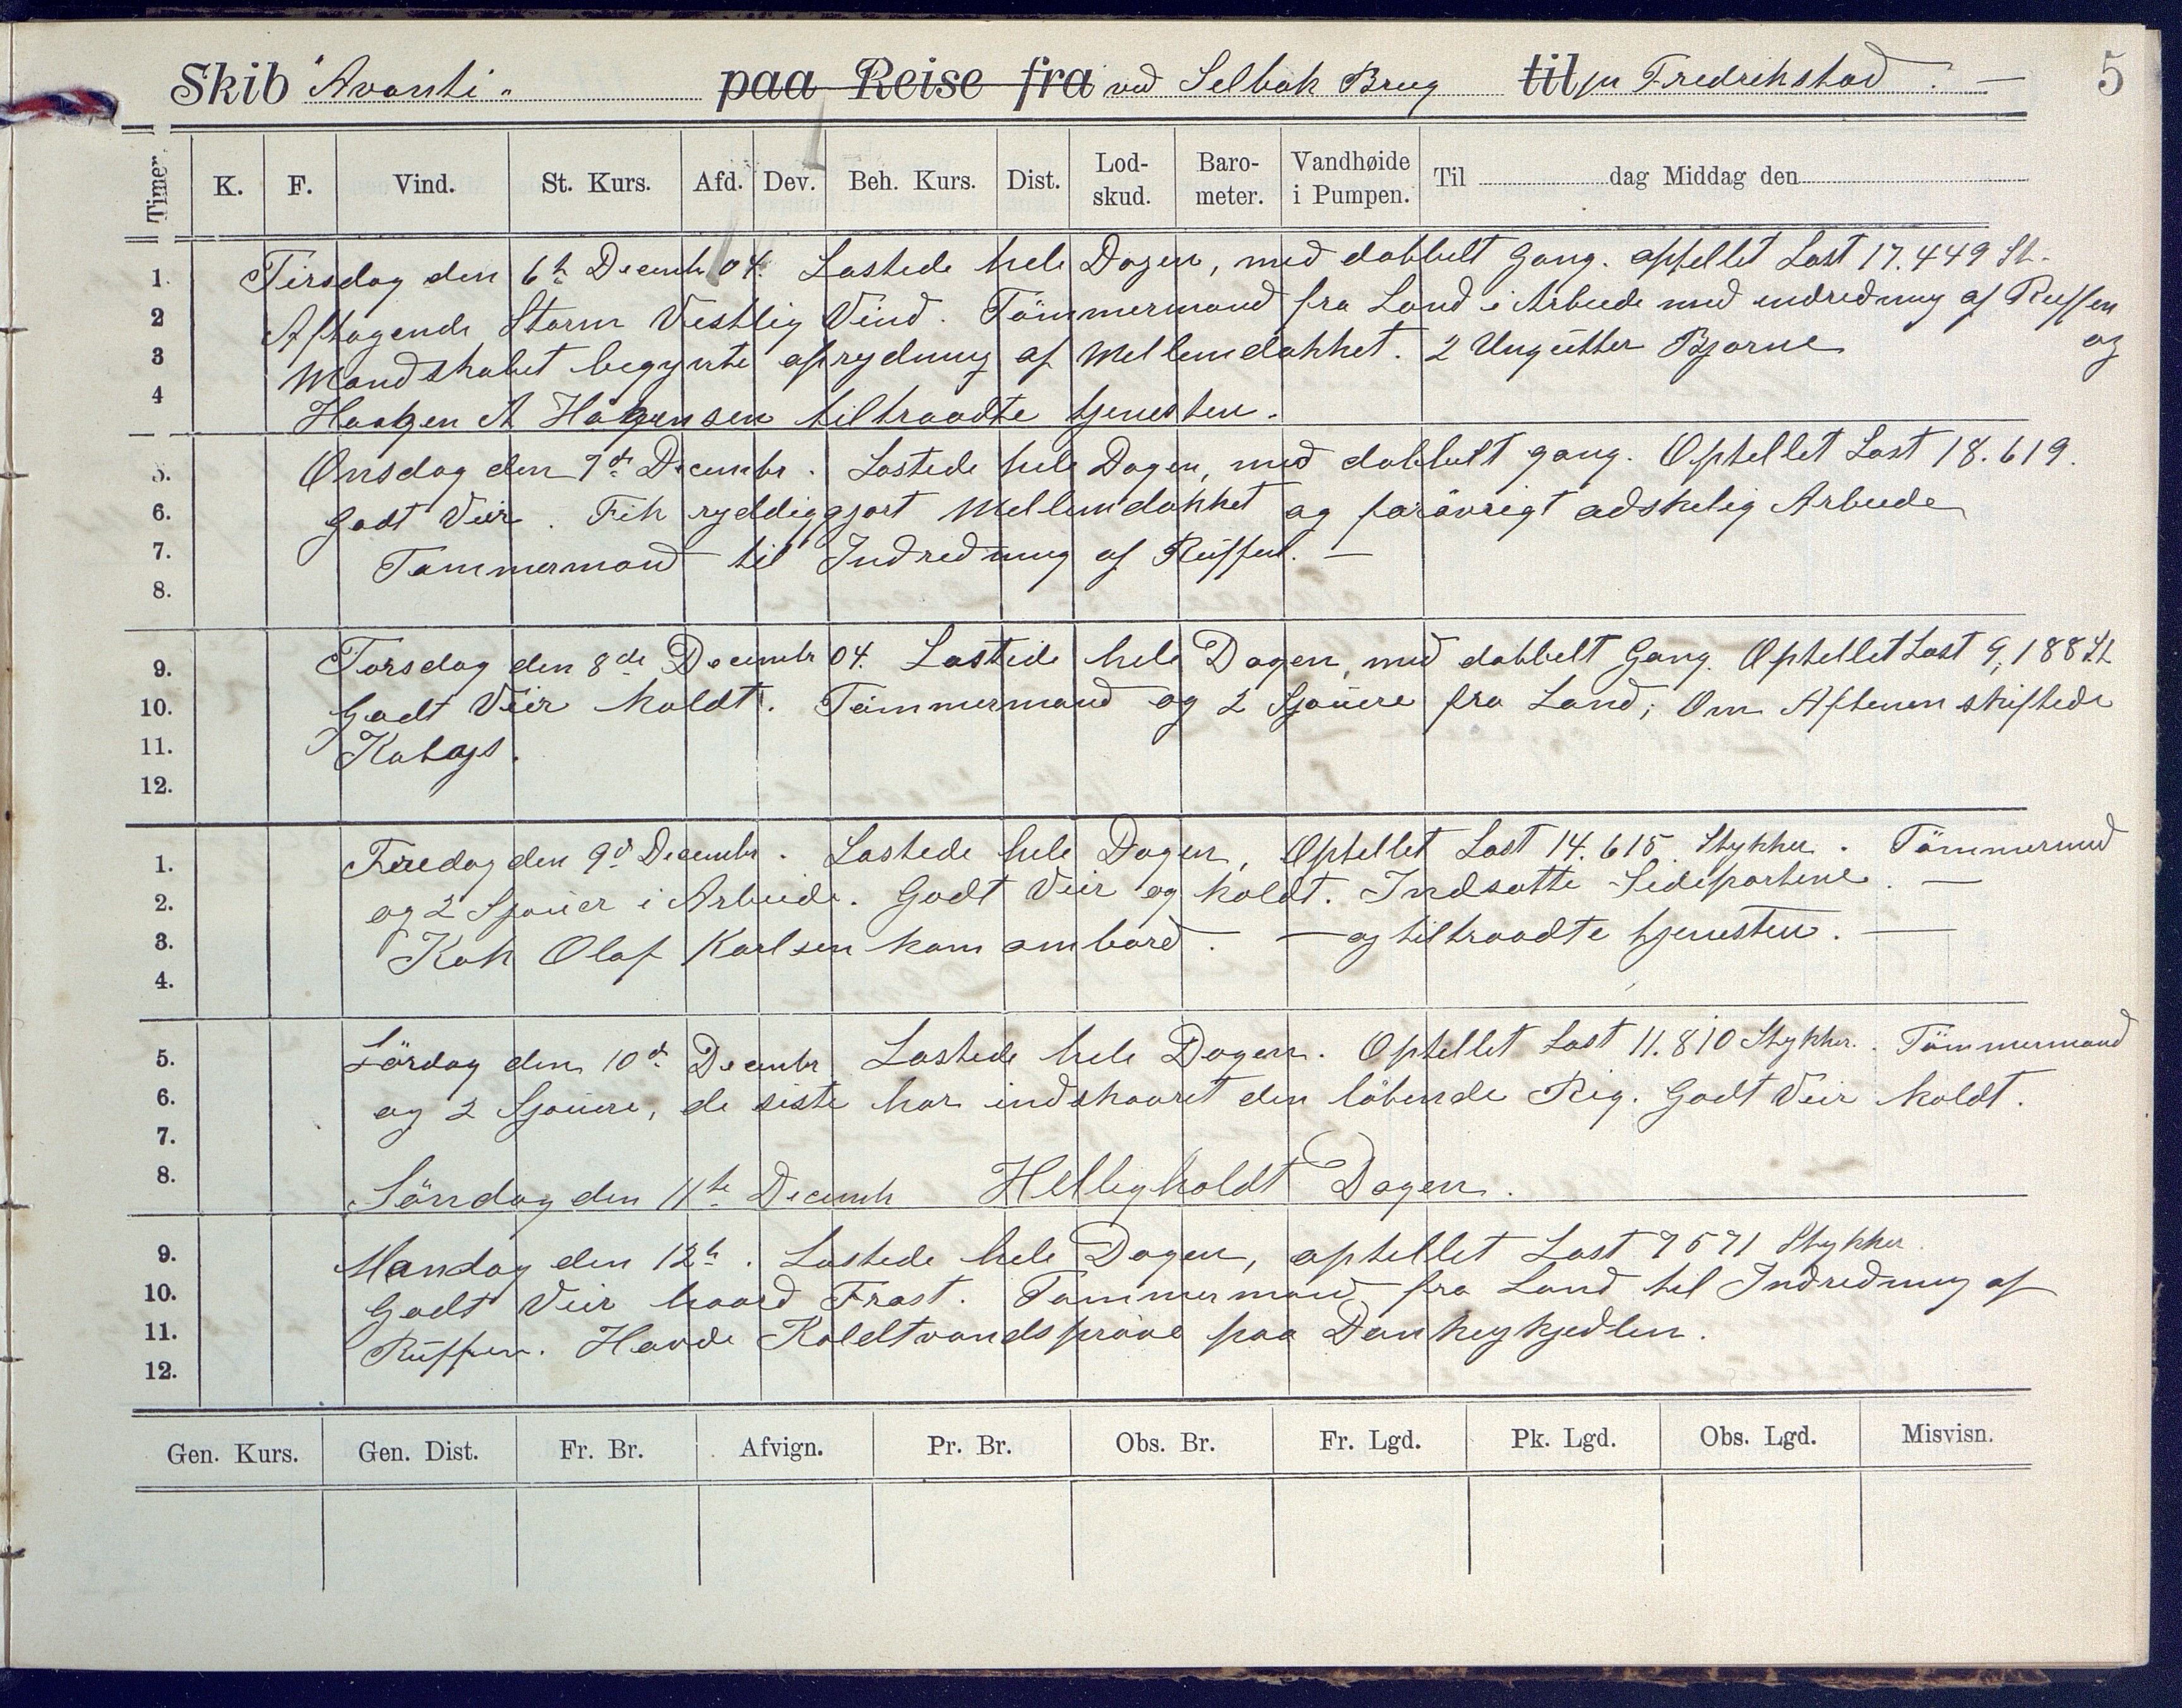 Skib "Avanti" paa Reise fra ved Selbak Brug til pr Fredrikstad. — 5
Timer. K. F. Vind. St. Kurs. Afd. Dev. Beh. Kurs. Dist. Lod-skud. Baro-meter. Vandhøide i Pumpen. Til dag Middag den
1. Tirsdag den 6te Decembr 04. Lastede hele Dagen, med dobbelt Gang. optellet Last 17.449 St.
2 Aftagende Storm Vestlig Vind. Tömmermand fra Land i Arbeide med indredning af Ruffen
3 Mandskabet begynte oprydning af Mellemdækket. 2 Ungutter Bjarne og
4 Haagen A Hågensen tiltraadte tjenesten.
5. Onsdag den 7de Decembr. Lastede hele Dagen, med dobbelt gang. Optellet Last 18.619.
6. Godt Veir. Fik ryddiggjort Mellemdækket og forövrigt adskelig Arbeide
7. Tømmermand til Indredning af Ruffen. —
8.
9. Torsdag den 8de Decembr 04. Lastede hele Dagen, med dobbelt Gang. Optellet Last 9,188 St
10. Godt Veir koldt. Tömmermand og 2 Sjauere fra Land; Om Aftenen skiftede
11. Kahags.
12.
1. Fredag den 9d Decembr. Lastede hele Dagen, Optellet Last 14.615 Stykker. Tömmermed
2. og 2 Sjauer i Arbeide. Godt Veir og koldt. Indsatte Sideportene. —
3. Kok Olaf Karlsen kom ombord. — og tiltraadte tjenesten. —
4.
5. Lördag den 10d Decembr Lastede hele Dagen. Optellet Last 11.810 Stykker. Tömmermand
6. og 2 Sjauere, de siste har indskaaret den löbende Rig. Godt Veir koldt.
7.
8. Söndag den 11te Decembr Helligholdt Dagen.
9. Mandag den 12te. Lastede hele Dagen, optellet Last 7571 Stykker
10. Godt Veir haard Frost. Tømmermand fra Land til Indredning af
11. Ruffen. Havde Koldtvandsprøve paa Donkeykjedlen.
12.
Gen. Kurs. Gen. Dist. Fr. Br. Afvign. Pr. Br. Obs. Br. Fr. Lgd. Pk. Lgd. Obs. Lgd. Misvisn.